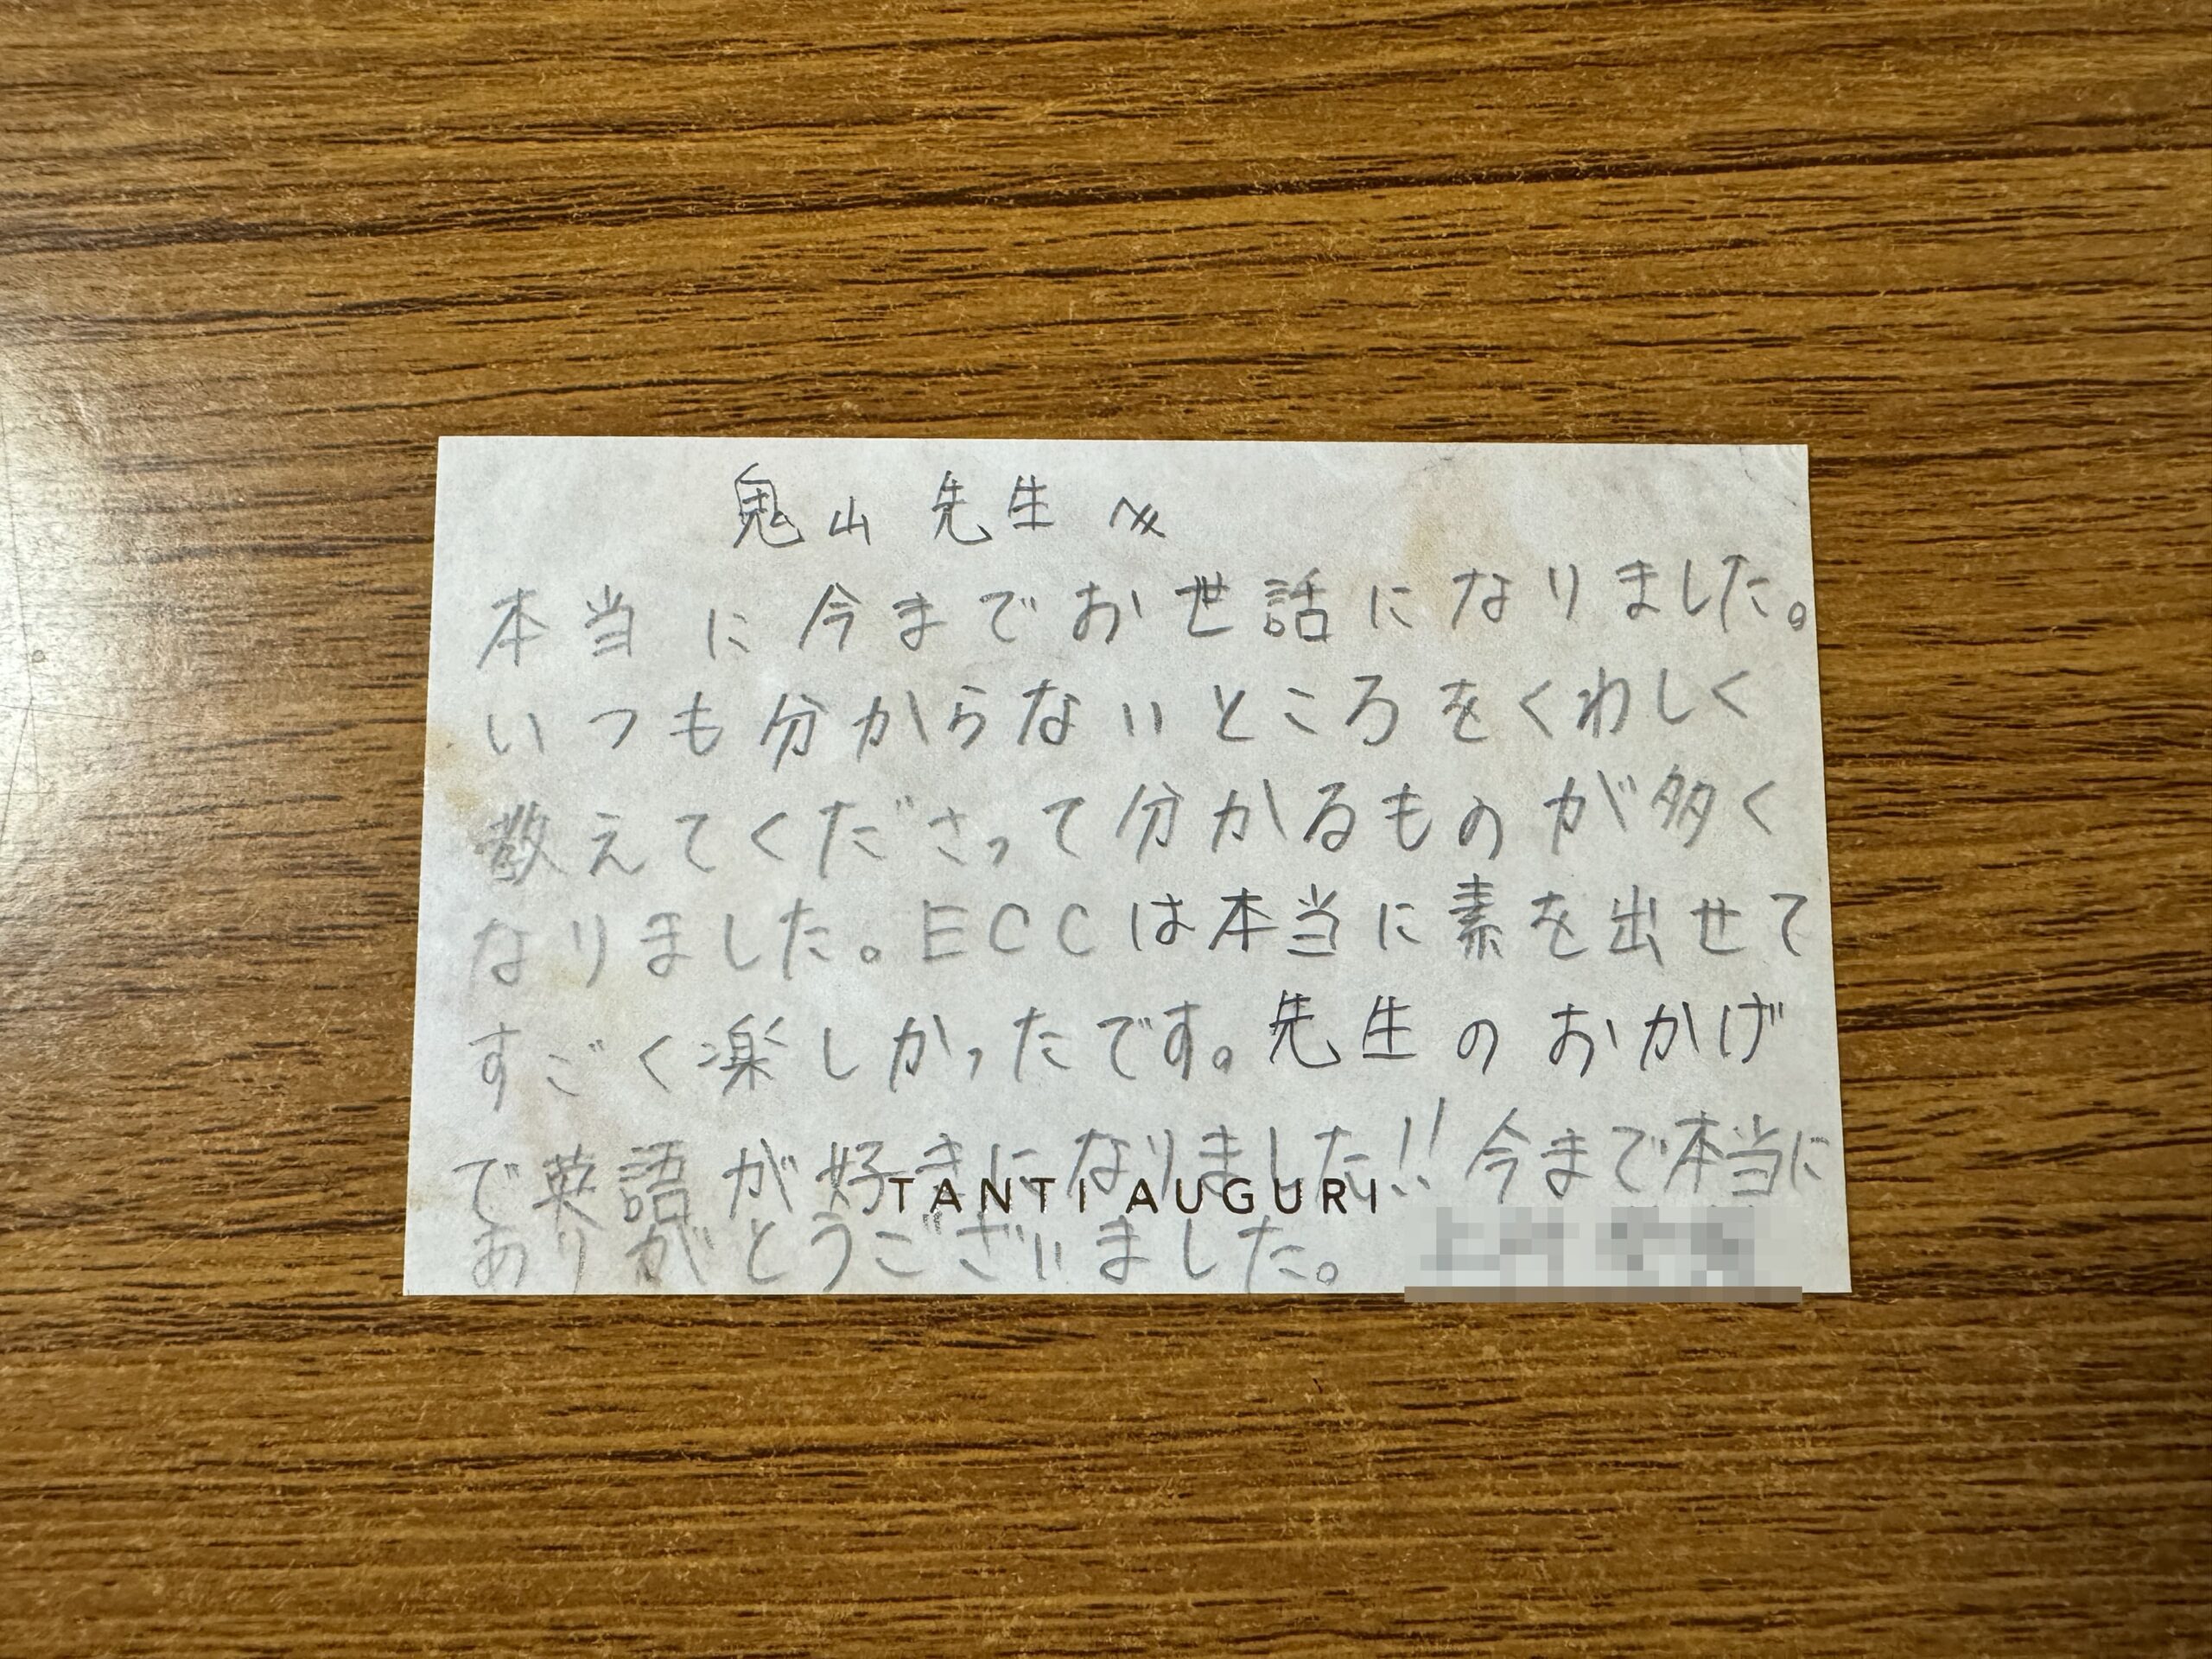 鬼山 先生 へ
本当に今までお世話になりました。
いつも分からないところをくわしく
教えてくださって分かるものが多く
なりました。ECCは本当に素を出せて
すごく楽しかったです。先生のおかげ
で英語が好きになりました!! 今まで本当に
TANTI AUGURI
ありがとうございました。